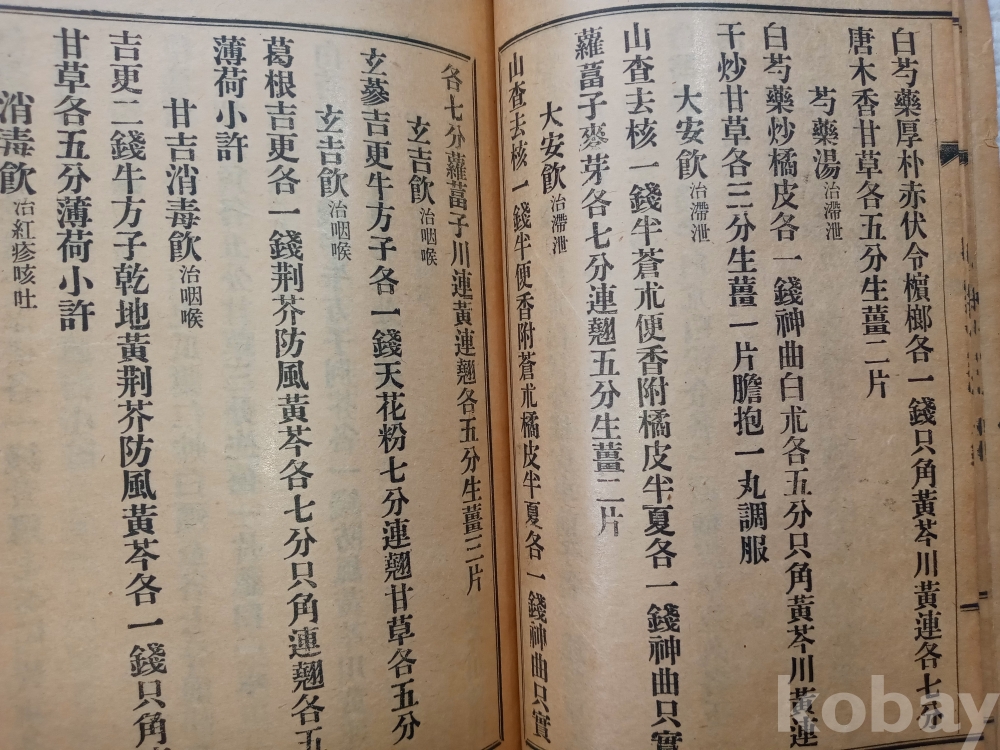 白芍藥厚朴赤伏令檳榔各一錢只角黃芩川黃連各七分
唐木香甘草各五分生薑二片
芍藥湯治滯泄
白芍藥炒橘皮各一錢神曲白朮各五分只角黃芩川黃連
干炒甘草各三分生薑一片膽抱一丸調服
大安飮治滯泄
山查去核一錢半蒼朮便香附橘皮半夏各一錢神曲只實
蘿葍子麥芽各七分連翹五分生薑二片
大安飮治滯泄
山查去核一錢半便香附蒼朮橘皮半夏各一錢神曲只實
各七分蘿葍子川連黃連翹各五分生薑三片
玄吉飮治咽喉
玄蔘吉更牛方子各一錢天花粉七分連翹甘草各五分
玄吉飮治咽喉
葛根吉更各一錢荊芥防風黃芩各七分只角連翹各五
薄荷小許
甘吉消毒飮治咽喉
吉更二錢牛方子乾地黃荊芥防風黃芩各一錢只角
甘草各五分薄荷小許
消毒飮治紅疹咳吐
kobay